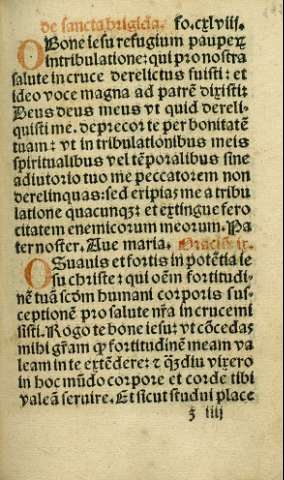 de sancta brigida. fo.cxlviij.
O Bone iesu refugium pauperꝝ
in tribulatione: qui pro nostra
salute in cruce derelictus fuisti: et
ideo voce magna ad patrē dixisti:
Deus deus meus vt quid dereli-
quisti me. deprecor te per bonitatē
tuam: vt in tribulationibus meis
spiritualibus vel tēporalibus sine
adiutorio tuo me peccatorem non
derelinquas: sed eripias me a tribu
latione quacunqꝫ: et extingue fero
citatem enemicorum meorum. Pa
ter noster. Aue maria. Oracio ix.
O Suauis et fortis in potētia ie
su christe: qui oēm fortitudi-
nē tuā scđm humani corporis sus-
ceptionē pro salute nr̄a in cruce mi
sisti. Rogo te bone iesu: vt cōcedas
mihi gr̄am ꝙ fortitudinē meam va
leam in te extēdere: et qꝫdiu vixero
in hoc mūdo corpore et corde tibi
valeā seruire. Et sicut studui place
ꝫ iiij